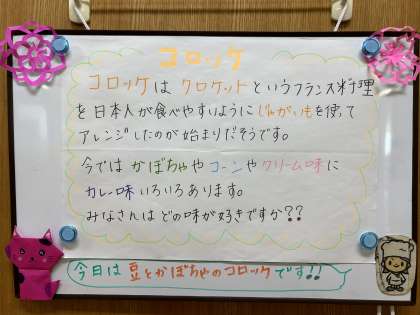 コロッケ
コロッケは クロケットというフランス料理
を日本人が食べやすいように じゃがいもを使って
アレンジしたのが 始まりだそうです。
今では かぼちゃや コーンや クリーム味に
カレー味 いろいろあります。
みなさんは どの味が好きですか??
今日は 豆とかぼちゃのコロッケです!!